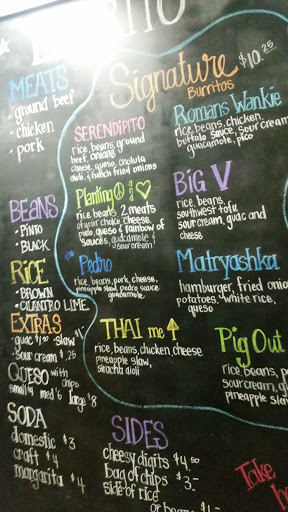 MEATS
- ground beef
- chicken
- pork
BEANS
- PINTO
- BLACK
RICE
- BROWN
- CILANTRO LIME
EXTRAS
- sour cream $.25
QUESO with chips
SODA
domestic $3
craft $4
margarita $4
Signature
Burritos
$10.25
SERENDIPITO
rice, beans, ground
beef, onions
cheese, queso, cholula
aioli & french fried onions
rice, beans, 2 meats
of your choice, cheese,
pico, queso & rainbow of
sauces, guacamole &
sour cream
Pedro
rice, beans, pork, cheese,
pineapple slaw, pedro sauce
guacamole
THAI me
rice, beans, chicken, cheese
pineapple slaw,
siracha aioli
Romans Wankie
rice, beans, chicken,
buffalo sauce, sour cream
guacamole, pico
BIG V
rice, beans,
southwest tofu,
sour cream, guac and
cheese
Matryashka
hamburger, fried onion
potatoes, white rice,
queso
Pig Out
rice, beans,
sour cream,
pineapple slaw
SIDES
cheesy digits $4.50
bag of chips $3-
side of rice
or beans
Take